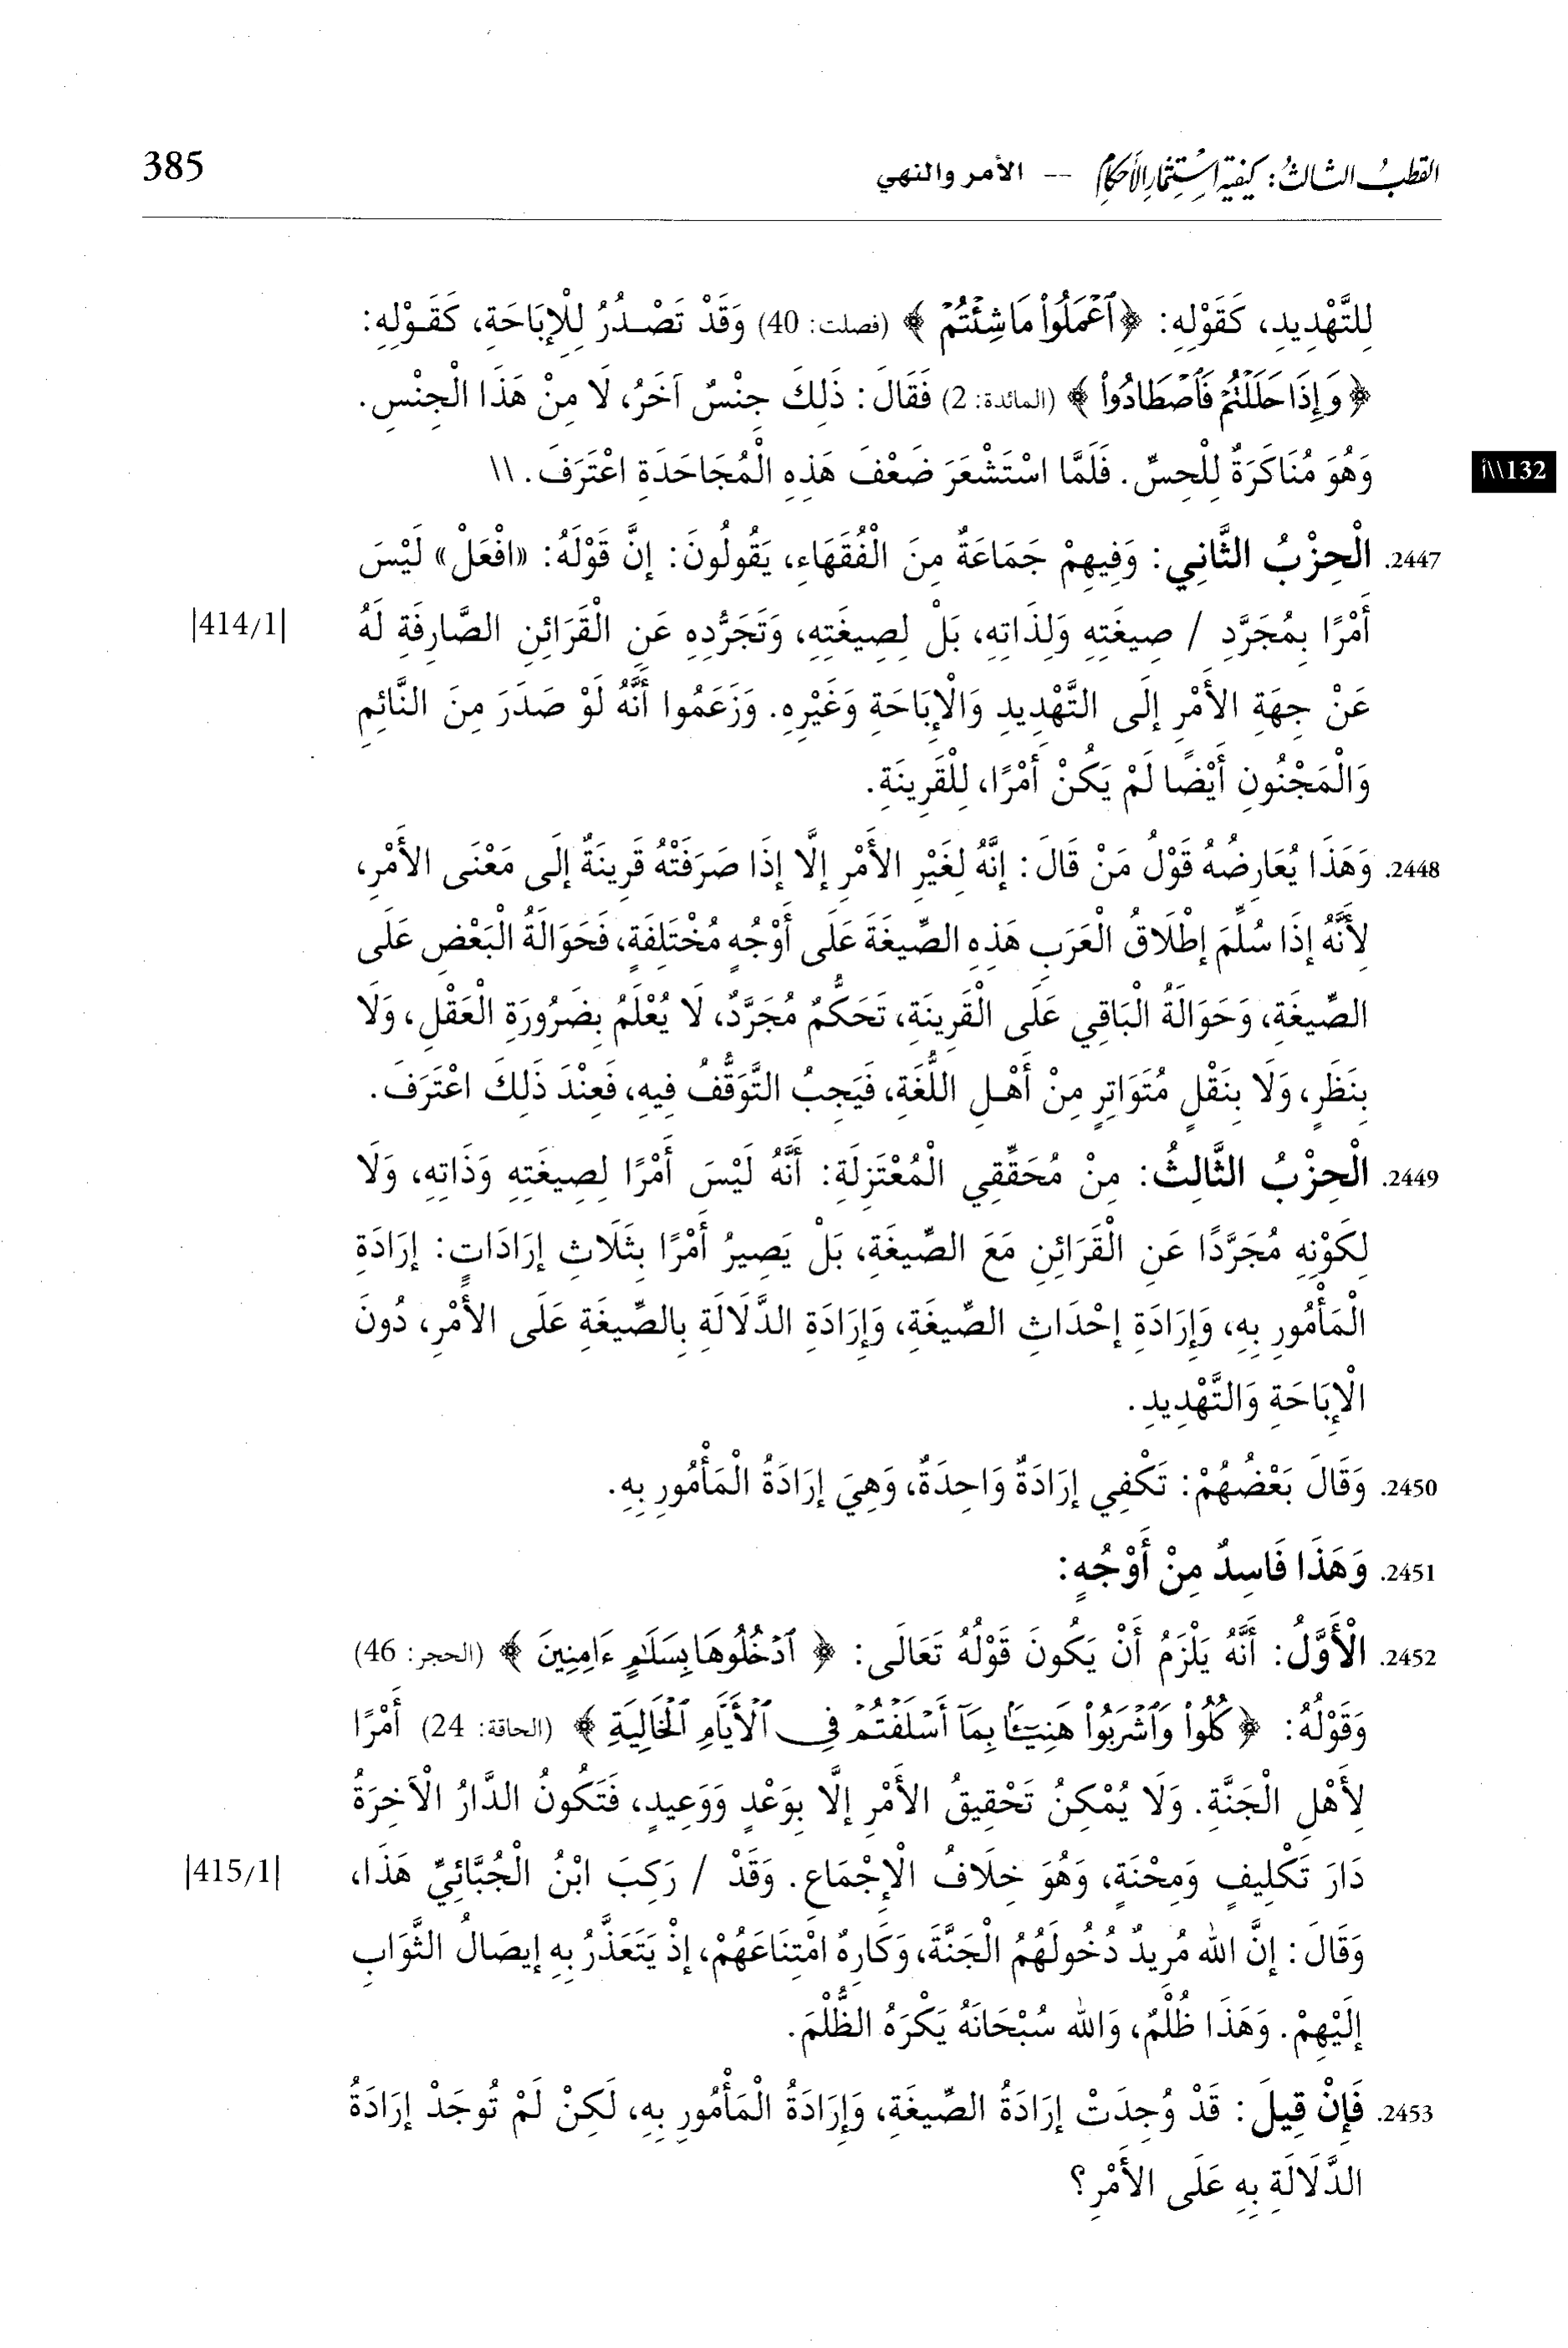 القطبُ الثالثُ: كيفية استثمار الأحكام -- الأمر والنهي 385
لِلتَّهْدِيدِ، كَقَوْلِهِ: ﴿ٱعْمَلُوا۟ مَا شِئْتُمْ﴾ (فصلت: 40) وَقَدْ تَصْدُرُ لِلْإِبَاحَةِ، كَقَوْلِهِ:
﴿وَإِذَا حَلَلْتُمْ فَٱصْطَادُوا۟﴾ (المائدة: 2) فَقَالَ: ذَلِكَ جِنْسٌ آخَرُ، لَا مِنْ هَذَا الْجِنْسِ.
وَهُوَ مُنَاكَرَةٌ لِلْحِسِّ. فَلَمَّا اسْتَشْعَرَ ضَعْفَ هَذِهِ الْمُجَاحَدَةِ اعْتَرَفَ. \\ 132\\أ
2447. الْحِزْبُ الثَّانِي: وَفِيهِمْ جَمَاعَةٌ مِنَ الْفُقَهَاءِ، يَقُولُونَ: إِنَّ قَوْلَهُ: «افْعَلْ» لَيْسَ
أَمْرًا بِمُجَرَّدِ / صِيغَتِهِ وَلِذَاتِهِ، بَلْ لِصِيغَتِهِ، وَتَجَرُّدِهِ عَنِ الْقَرَائِنِ الصَّارِفَةِ لَهُ |414/1|
عَنْ جِهَةِ الأَمْرِ إِلَى التَّهْدِيدِ وَالْإِبَاحَةِ وَغَيْرِهِ. وَزَعَمُوا أَنَّهُ لَوْ صَدَرَ مِنَ النَّائِمِ
وَالْمَجْنُونِ أَيْضًا لَمْ يَكُنْ أَمْرًا، لِلْقَرِينَةِ.
2448. وَهَذَا يُعَارِضُهُ قَوْلُ مَنْ قَالَ: إِنَّهُ لِغَيْرِ الأَمْرِ إِلَّا إِذَا صَرَفَتْهُ قَرِينَةٌ إِلَى مَعْنَى الأَمْرِ،
لِأَنَّهُ إِذَا سُلِّمَ إِطْلَاقُ الْعَرَبِ هَذِهِ الصِّيغَةَ عَلَى أَوْجُهٍ مُخْتَلِفَةٍ، فَحَوَالَةُ الْبَعْضِ عَلَى
الصِّيغَةِ، وَحَوَالَةُ الْبَاقِي عَلَى الْقَرِينَةِ، تَحَكُّمٌ مُجَرَّدٌ، لَا يُعْلَمُ بِضَرُورَةِ الْعَقْلِ، وَلَا
بِنَظَرٍ، وَلَا بِنَقْلٍ مُتَوَاتِرٍ مِنْ أَهْلِ اللُّغَةِ، فَيَجِبُ التَّوَقُّفُ فِيهِ، فَعِنْدَ ذَلِكَ اعْتَرَفَ.
2449. الْحِزْبُ الثَّالِثُ: مِنْ مُحَقِّقِي الْمُعْتَزِلَةِ: أَنَّهُ لَيْسَ أَمْرًا لِصِيغَتِهِ وَذَاتِهِ، وَلَا
لِكَوْنِهِ مُجَرَّدًا عَنِ الْقَرَائِنِ مَعَ الصِّيغَةِ، بَلْ يَصِيرُ أَمْرًا بِثَلَاثِ إِرَادَاتٍ: إِرَادَةِ
الْمَأْمُورِ بِهِ، وَإِرَادَةِ إِحْدَاثِ الصِّيغَةِ، وَإِرَادَةِ الدَّلَالَةِ بِالصِّيغَةِ عَلَى الأَمْرِ، دُونَ
الْإِبَاحَةِ وَالتَّهْدِيدِ.
2450. وَقَالَ بَعْضُهُمْ: تَكْفِي إِرَادَةٌ وَاحِدَةٌ، وَهِيَ إِرَادَةُ الْمَأْمُورِ بِهِ.
2451. وَهَذَا فَاسِدٌ مِنْ أَوْجُهٍ:
2452. الْأَوَّلُ: أَنَّهُ يَلْزَمُ أَنْ يَكُونَ قَوْلُهُ تَعَالَى: ﴿ٱدْخُلُوهَا بِسَلَٰمٍ ءَامِنِينَ﴾ (الحجر: 46)
وَقَوْلُهُ: ﴿كُلُوا۟ وَٱشْرَبُوا۟ هَنِيٓـًٔۢا بِمَآ أَسْلَفْتُمْ فِى ٱلْأَيَّامِ ٱلْخَالِيَةِ﴾ (الحاقة: 24) أَمْرًا
لِأَهْلِ الْجَنَّةِ. وَلَا يُمْكِنُ تَحْقِيقُ الأَمْرِ إِلَّا بِوَعْدٍ وَوَعِيدٍ، فَتَكُونُ الدَّارُ الْآخِرَةُ
دَارَ تَكْلِيفٍ وَمِحْنَةٍ، وَهُوَ خِلَافُ الْإِجْمَاعِ. وَقَدْ / رَكِبَ ابْنُ الْجُبَّائِيِّ هَذَا، |415/1|
وَقَالَ: إِنَّ اللهَ مُرِيدٌ دُخُولَهُمُ الْجَنَّةَ، وَكَارِهٌ امْتِنَاعَهُمْ، إِذْ يَتَعَذَّرُ بِهِ إِيصَالُ الثَّوَابِ
إِلَيْهِمْ. وَهَذَا ظُلْمٌ، وَاللهُ سُبْحَانَهُ يَكْرَهُ الظُّلْمَ.
2453. فَإِنْ قِيلَ: قَدْ وُجِدَتْ إِرَادَةُ الصِّيغَةِ، وَإِرَادَةُ الْمَأْمُورِ بِهِ، لَكِنْ لَمْ تُوجَدْ إِرَادَةُ
الدَّلَالَةِ بِهِ عَلَى الأَمْرِ؟